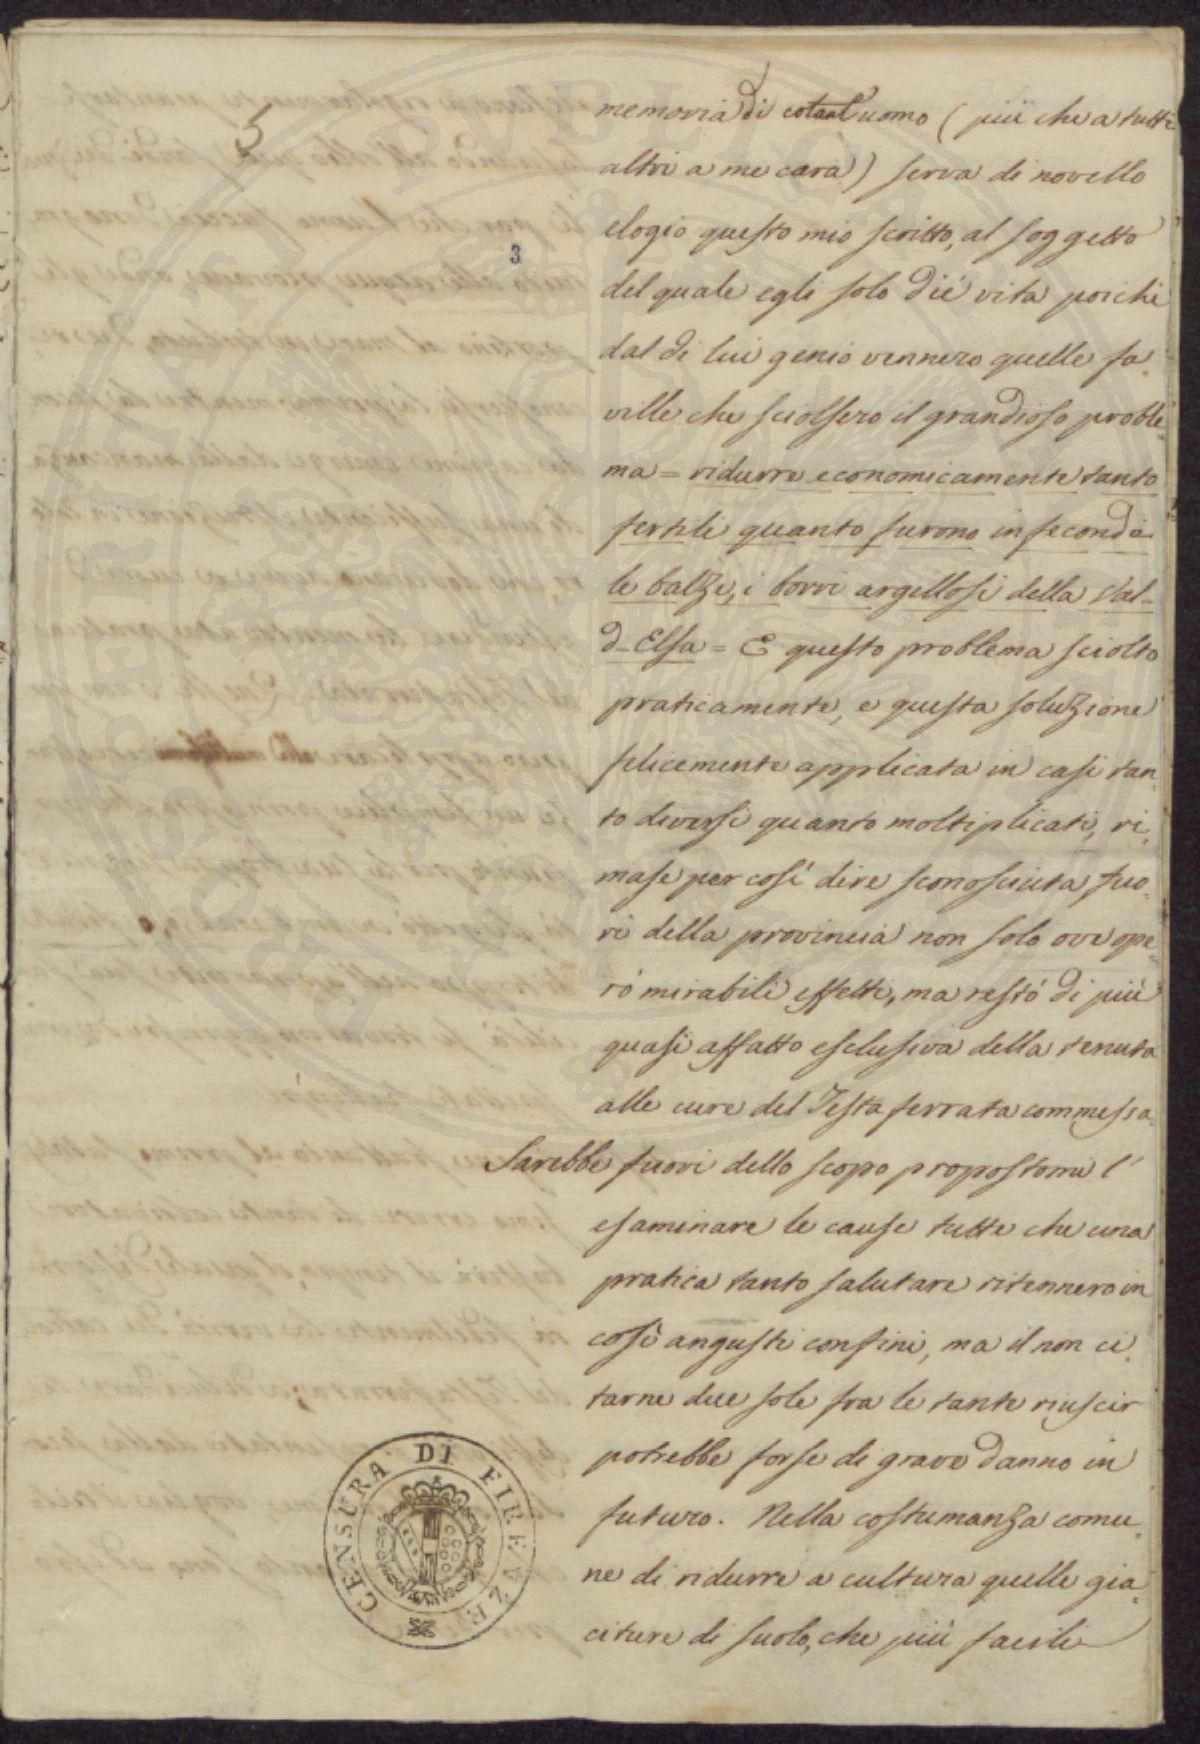 5
3
memoria di cotant'uomo (più che a tutti
altri a me cara) serva di novello
elogio questo mio scritto, al soggetto
del quale egli solo dié vita poichè
dal di lui genio vennero quelle fa-
ville che sciolsero il grandioso proble-
ma = ridurre economicamente tanto
fertili quanto furono infeconde
le balze, i borri argillosi della Val-
d-Elsa = E questo problema sciolto
praticamente, e questa soluzione
felicemente applicata in casi tan-
to diversi quanto moltiplicati, ri-
mase per così dire sconosciuta fuo-
ri della provincia non solo ove ope-
rò mirabili effetti, ma restò di più
quasi affatto esclusiva della tenuta
alle cure del Testaferrata commessa.
Sarebbe fuori dello scopo propostomi l'
esaminare le cause tutte che una
pratica tanto salutare ritennero in
così angusti confini, ma il non ci-
tarne due sole fra le tante riuscir
potrebbe forse di grave danno in
futuro. Nella costumanza comu-
ne di ridurre a cultura quelle gia-
citure di suolo, che più facili
CENSURA DI FIRENZE